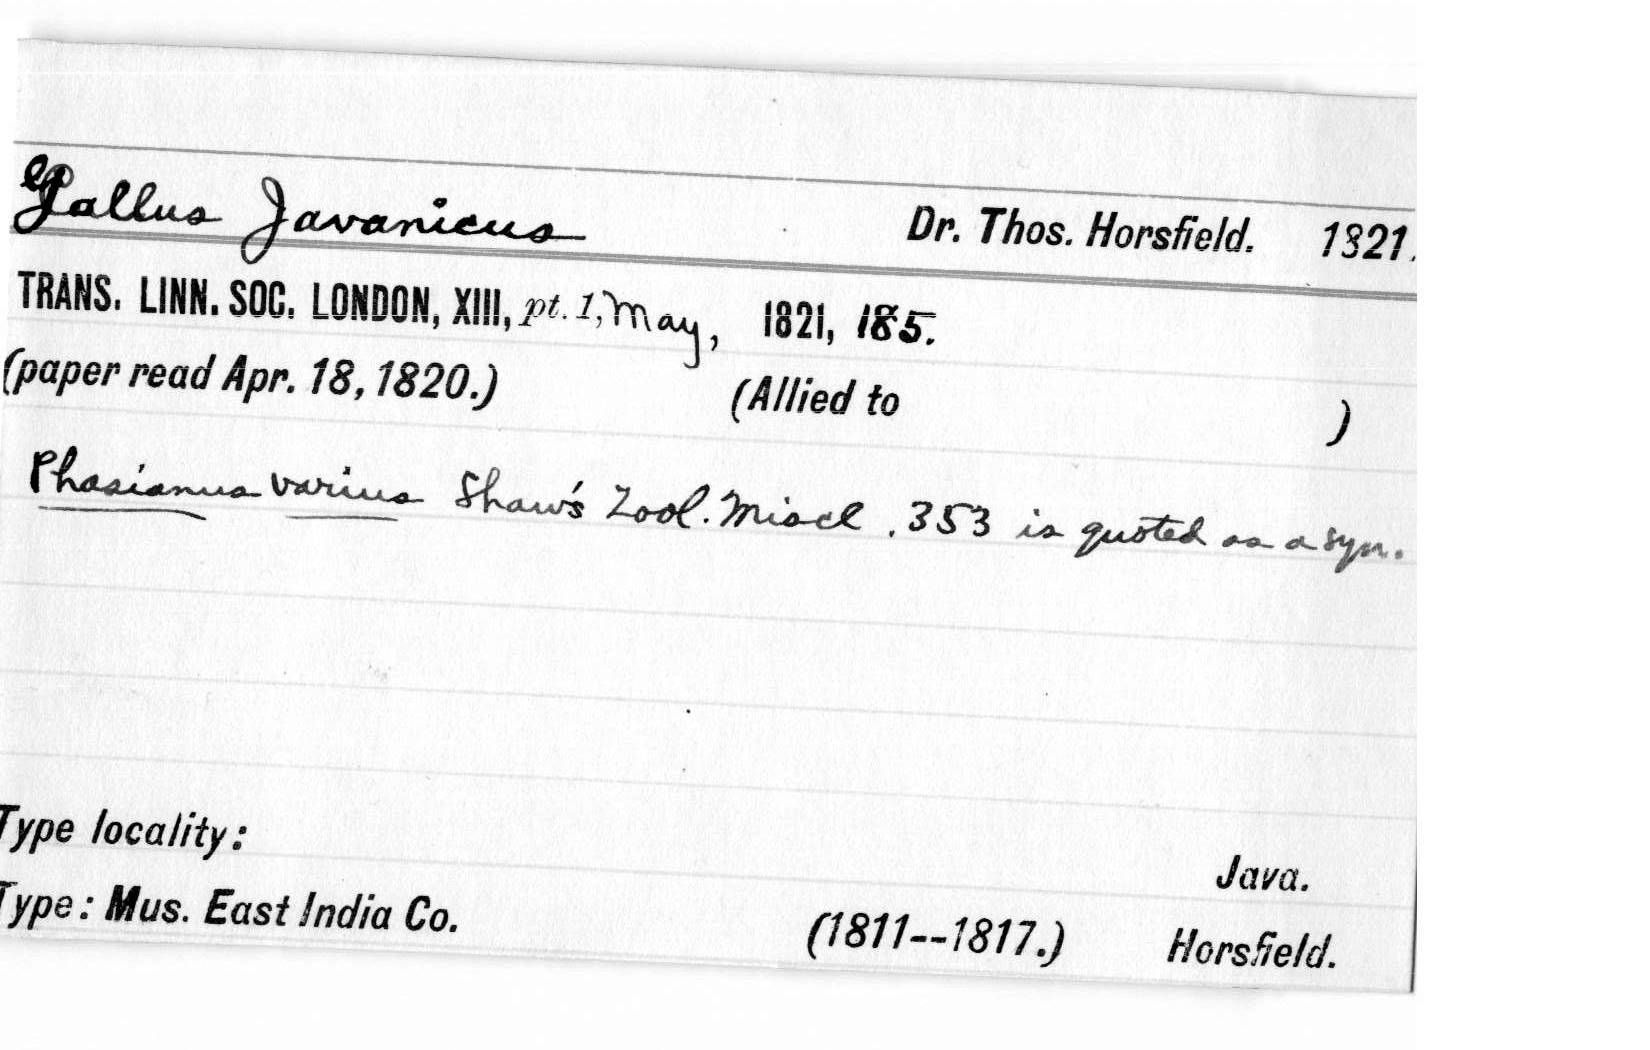 Gallus Javanicus Dr. Thos. Horsfield. 1821.
TRANS. LINN. SOC. LONDON, XIII, pt. 1, May, 1821, 185.
(paper read Apr. 18, 1820.) (Allied to )
Phasianus varius Shaw's Zool. Miscl. 353 is quoted as a syn.
Type locality: Java.
Type: Mus. East India Co. (1811--1817.) Horsfield.